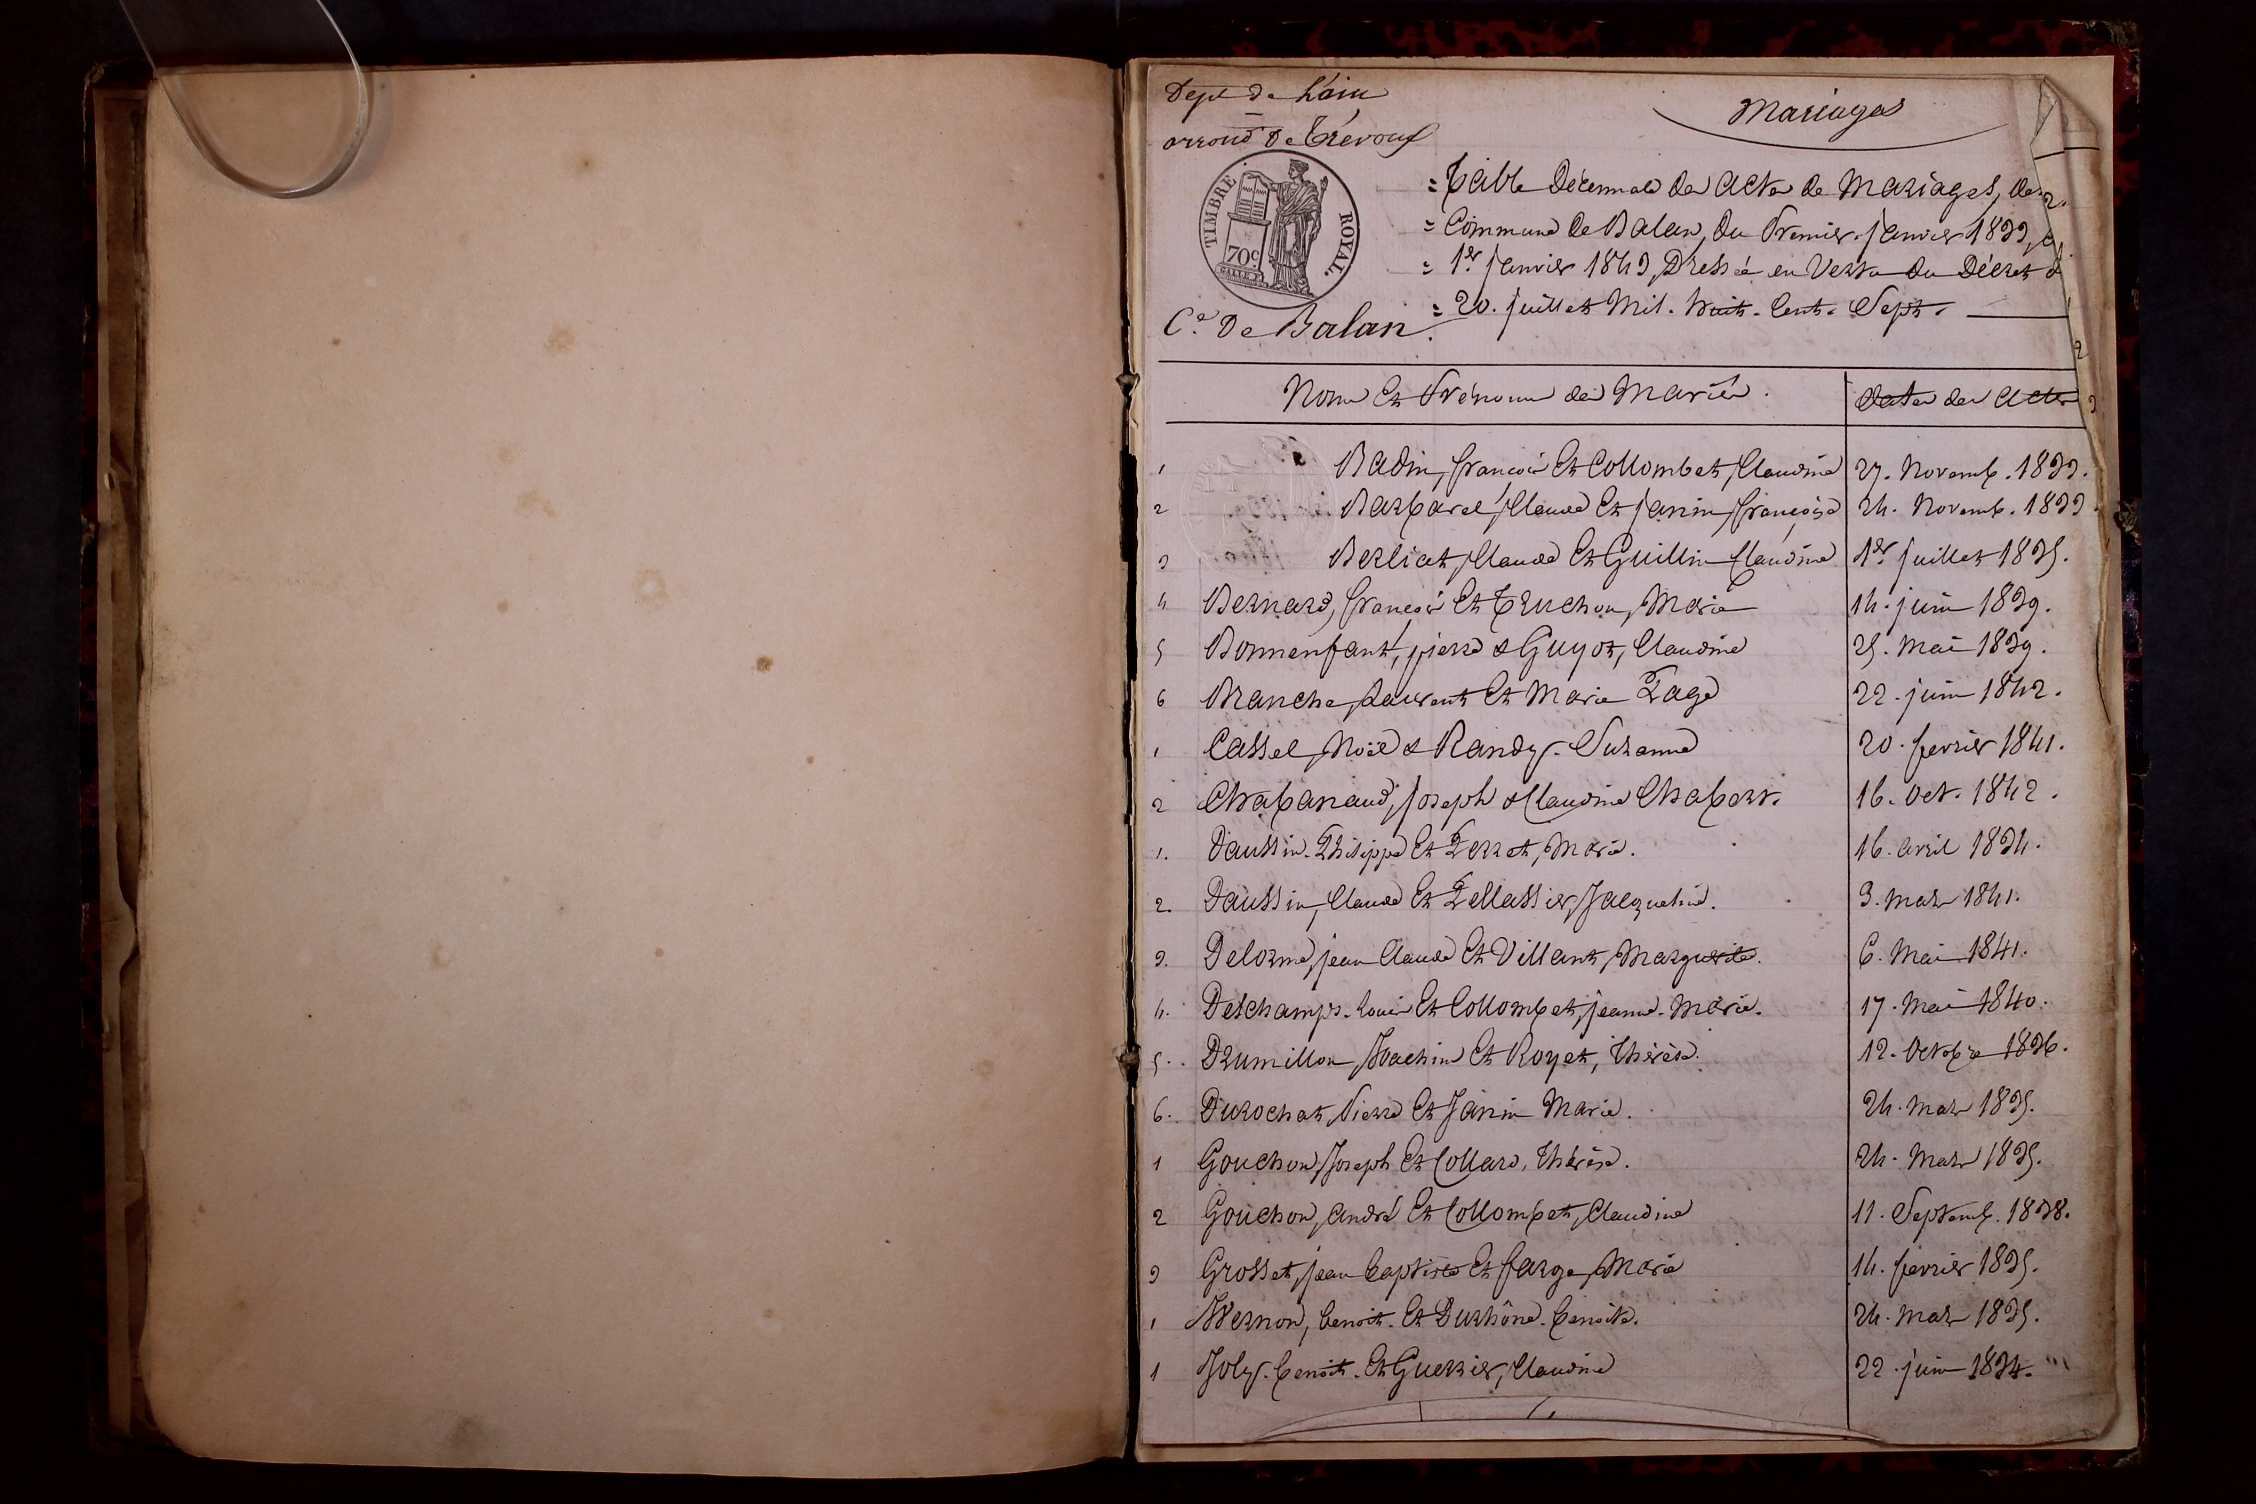 Dept de L'ain
arrond. De Trévoux
Mariages
TIMBRE ROYAL.
70c
= Table Décennale des Actes de Mariages, de
= Commune de Balan, du Premier janvier 1833,
= 1er janvier 1843, Dressée en Vertu du Décret d
= 20. juillet Mil. huit. Cent. Sept.
Cne De Balan.
Noms Et Prénoms des Mariés.
Dates des Actes
1 Badin, françois Et Collombet, Claudine 27. Novemb. 1833.
2 Barbarel, Claude Et janin, françoise 24. Novemb. 1833.
3 Berliat, Claude Et Guillin Claudine 1er juillet 1835.
4 Bernard, françois Et Truchon, Marie 14. juin 1839.
5 Bonnenfant, pierre & Guyot, Claudine 25. Mai 1839.
6 Branche, Laurent Et Marie Page 22. juin 1842.
1 Cassel, Noël & Randy. Suzanne 20. fevrier 1841.
2 Chabanaud, joseph & Claudine Chabert. 16. Oct. 1842.
1. Daussin. Philippe Et Perret, Marie. 16. avril 1834.
2. Daussin, Claude Et Pellassier, Jacqueline. 3. Mars 1841.
3. Delorme, jean Claude Et Villant, Marguerite. 6. Mai 1841.
4. Deschamps. Louis Et Collombet, jeanne. Marie. 17. Mai 1840.
5. Drumillon, Joachim Et Royet, Thérèse. 12. Octobre 1836.
6. Durochat, Pierre Et Janin Marie. 24. Mars 1835.
1 Gouchon, Joseph Et Collard, Thérèse. 24. Mars 1835.
2 Gouchon, André Et Collombet, Claudine 11. Septemb. 1838.
3 Grosset, jean baptiste Et farge, Marie 14. fevrier 1835.
1 Ivernon, benoit. Et Durhône. benoite. 24. Mars 1835.
1 Joly. benoit. Et Guerrier, Claudine 22. juin 1834.